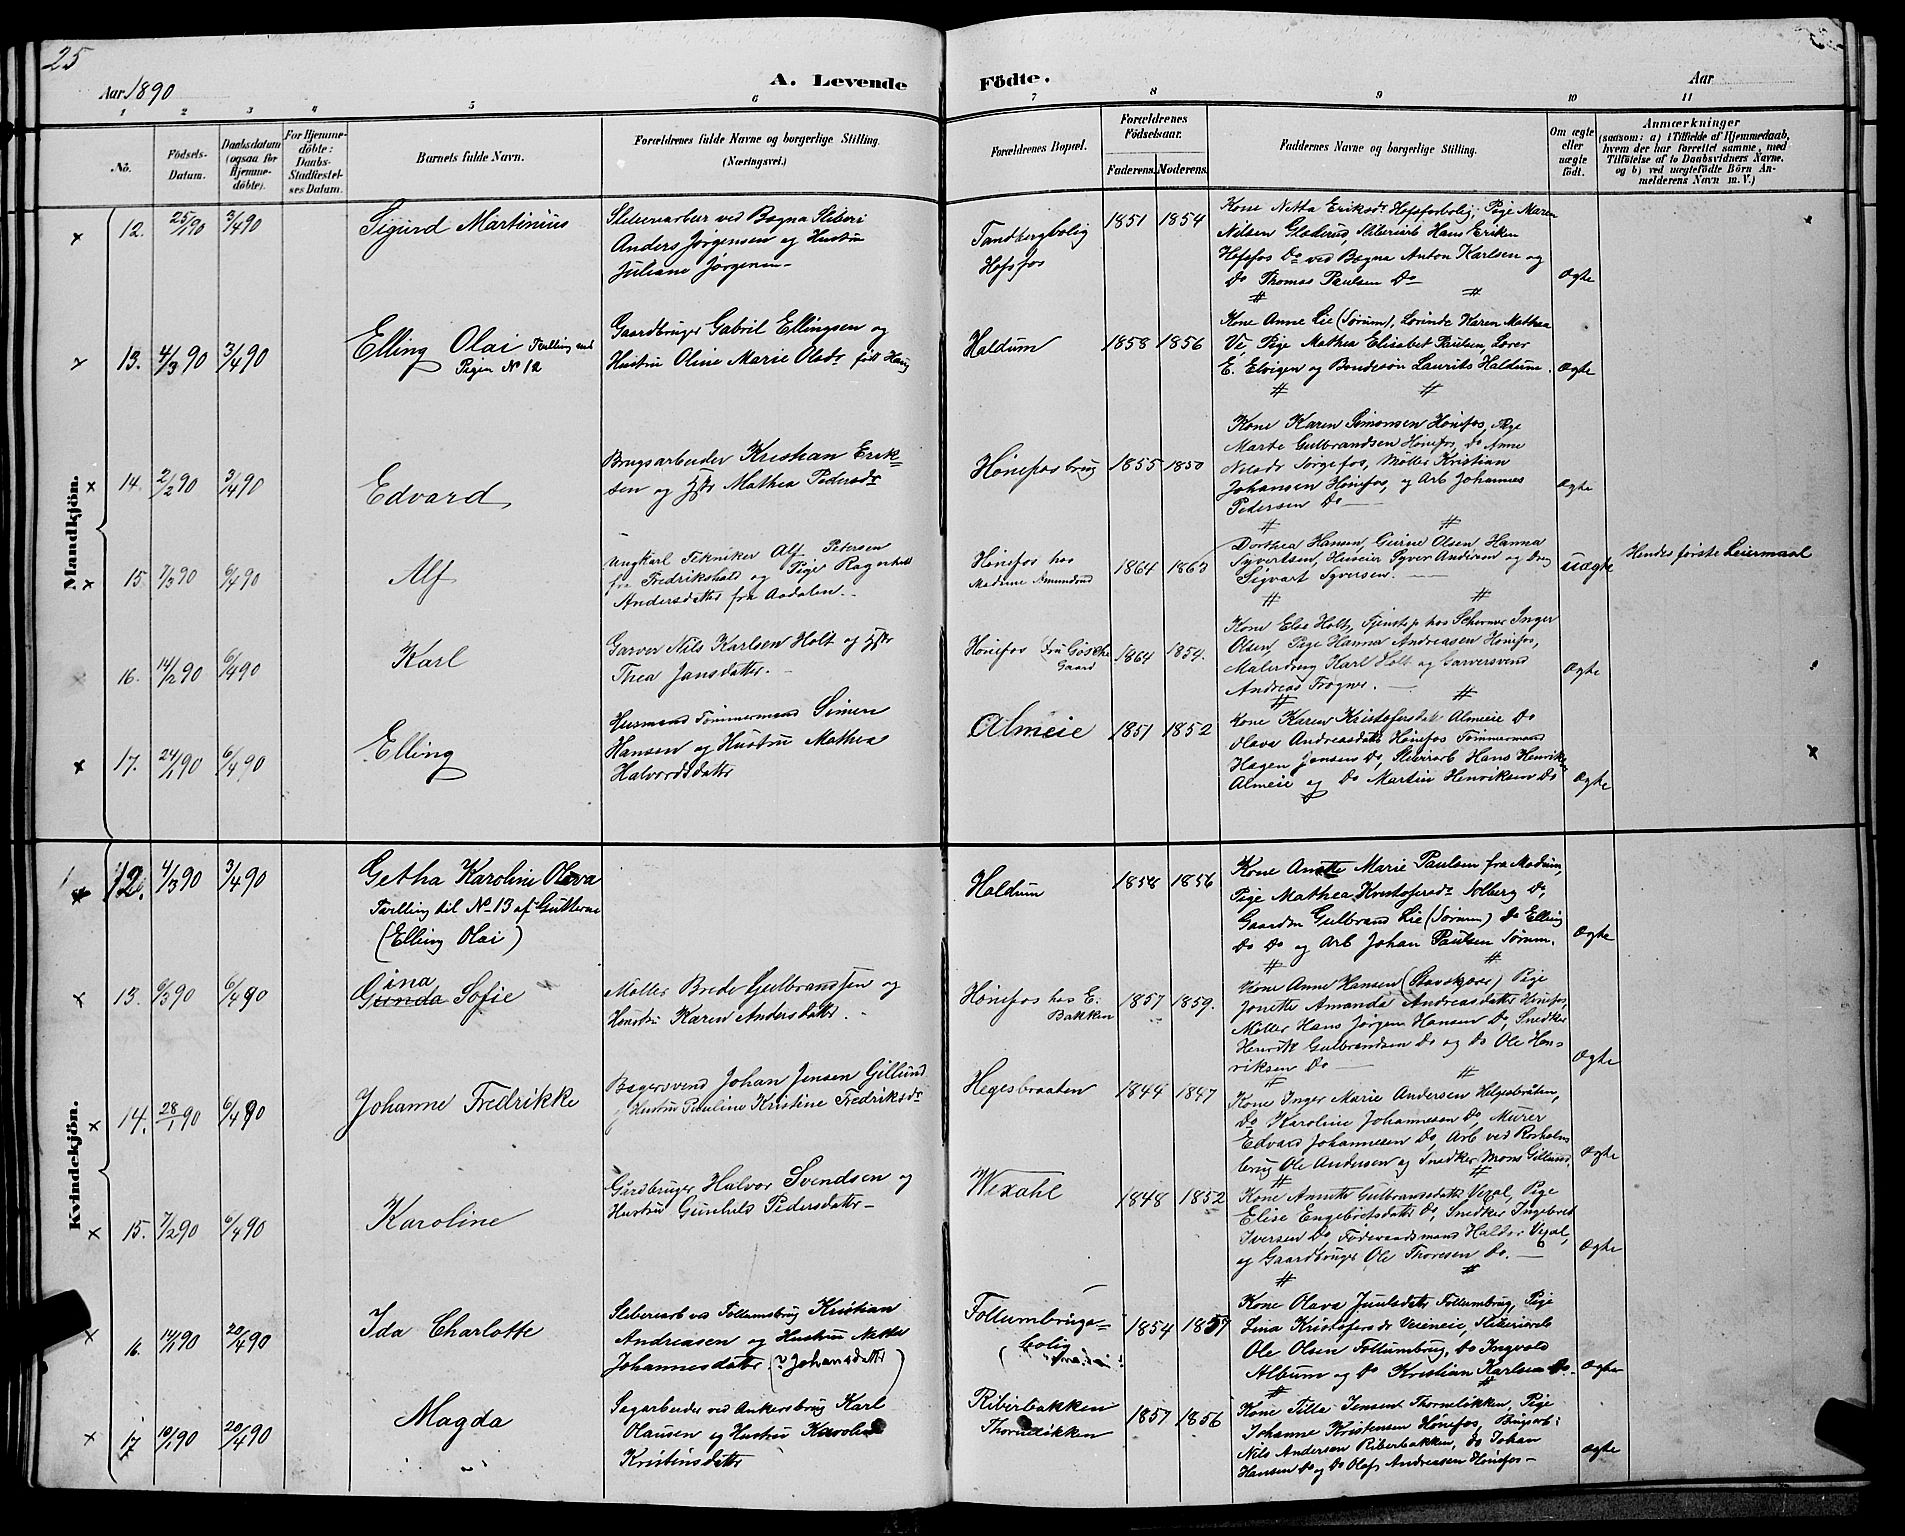 25
Aar 1890
A. Levende Födte.
Aar
1 2 3 4 5 6 7 8 9 10 11
No.
Födsels-Datum.
Daabsdatum (ogsaa for Hjemmedöbte).
For Hjemmedöbte: Daabs-Stadfæstelses Datum.
Barnets fulde Navn.
Forældrenes fulde Navne og borgerlige Stilling. (Næringsvei.)
Forældrenes Bopæl.
Forældrenes Födselsaar.
Faderens. Moderens.
Faddernes Navne og borgerlige Stilling.
Om ægte eller uægte födt.
Anmærkninger
(saasom: a) i Tilfælde af Hjemmedaab, hvem der har forrettet samme, med Tilföielse af to Daabsvidners Navne. og b) ved uægtefödte Börn Anmelderens Navn m. V.)
Mandkjön.
12. 25/1 90 3/4 90
Sigurd Martinius
Sliberiarber ved Bægna Sliberi
Anders Jørgensen og Hustru
Juliane Jørgensen
Tandbergbolig
Hofsfos
1851 1854
Kone Netta Eriksdr Hofsfosbolig, Pige Maren
Nilsen Gladerud, Sliberiarb Hans Eriksen
Hofsfos Do ved Bægna Anton Karlsen og
Do Thomas Paulsen Do
Ægte
13. 4/3 90 3/4 90
Elling Olai Tvilling med
Pigen No 12
Gaardbruger Gabril Ellingsen og
Hustru Oline Marie Olsdr født Haug
Haldum
1858 1856
Kone Anne Lie (Sørum), Lærinde Karen Mathea
Vi Pige Mathea Elisabet Paulsen, Lærer
E. Elvigen og Bondesøn Laurits Haldum.
Ægte
14. 2/2 90 3/4 90
Edvard
Brugsarbeider Kristian Erik-
sen og Hstr Mathea Pedersdr
Hønefosbrug
1855 1850
Kone Karen Simonsen Hønefos, Pige
Marte Gulbrandsen Hønefos, Do Anne
Nilsdr Sørgefos, Møller Kristian
Johansen Hønefos, og Arb Johannes
Pedersen Do
Ægte
15. 7/3 90 6/4 90
Alf
Ungkarl Tekniker Alf Petersen
fra Fredrikshald og Pige Ragnhild
Andersdatter fra Aadalen.
Hønefos hos
Madame Amundrud
1864 1863
Dorthea Hansen, Gurine Olsen, Hanna
Syvertsen, Huseier Syver Andersen og Dreng
Sigvart Syversen.
uægte
Hendes første Leiermaal
16. 14/2 90 6/4 90
Karl
Garver Nils Karlsen Holt og Hstr
Thea Jansdatter.
Hønefos
Gaard
1864 1854.
Kone Else Holt, Tjenstep hos Schermer Inger
Olsen, Pige Hanna Andreasen Hønefos,
Malerdreng Karl Holt og Garversvend
Andreas Frogner.
Ægte
17. 24/1 90 6/4 90
Elling
Husmand Tømmermand Simen
Hansen og Hustru Mathea
Halvordsdatter
Almeie
1851 1852
Kone Karen Kristofersdatr Almeie Do
Olava Andreasdatter Hønefos Tømmermand
Hagen Jensen Do, Sliberiarb Hans Henriksen
Almeie og Do Martin Henriksen Do
Ægte
Kvindekjön.
12. 4/3 90 3/4 90
Getha Karoline Olava
Tvilling til No 13 af Gutterne
(Elling Olai)
Haldum
1858 1856
Kone Anette Marie Paulsen fra Modum,
Pige Mathea Kristofersdr Solberg Do,
Gaardm Gulbrand Lie (Sørum) Do Elling
Do Do og Arb Johan Paulsen Sørum.
Ægte
13. 6/3 90 6/4 90
Gina
Gunda Sofie
Møller Brede Gulbrandsen og
Hustru Karen Andersdatter.
Hønefos hos E.
Bakken
1857 1859.
Kone Anne Hansen (Stavskjær) Pige
Jonette Amanda Andreasdatter Hønefos,
Møller Hans Jørgen Hansen Do, Snedker
Henrik Gulbrandsen Do og Do Ole Hen-
riksen Do
Ægte
14. 28/1 90 6/4 90
Johanne Fredrikke
Bagersvend Johan Jensen Gillund
Hustru Pauline Kristine Fredriksdr
Hegesbraaten
1844 1847
Kone Inger Marie Andersen Helgesbråten,
Do Karoline Johannesen Do, Murer
Edvard Johannesen Do, Arb ved Rosholm
brug Ole Andersen og Snedker Mons Gillund,
Ægte
15. 7/2 90 6/4 90
Karoline
Gårdbruger Halvor Svendsen og
Hustru Gunhild Pedersdatter
Wexahl
1848 1852
Kone Annette Gulbransdatter Vexal, Pige
Elise Engebretsdatter Do, Snedker Ingebret
Iversen Do Føderaadsmand Haldor Vexal,
og Gaardbruger Ole Thoresen Do.
Ægte
16. 14/1 90 20/4 90
Ida Charlotte
Sliberiarb ved Follumsbrug Kristian
Andreasen og Hustru Nette
Johannesdatter (? Johansdatter)
Follumbrugs-
bolig
1854 1857
Kone Olava Juulsdatter Follumbrug, Pige
Lina Kristofersdr Veieneie, Sliberiarb
Ole Olsen Follumbrug, Do Ingvold
Album og Do Kristian Karlsen Do.
Ægte
17 10/1 90 20/4 90
Magda
Sagarbeider ved Ankersbrug Karl
Olausen og Hustru Karoline
Kristinsdatter
Riberbakken
Thorneløkken
1857 1856
Kone Tilla Jensen Thorneløkken, Pige
Johanne Kristensen Hønefos, Brugsarb:
Nils Andersen Riberbakken, Do Johan
Hansen Do og Do Olaf Andreasen Hønefos
Ægte